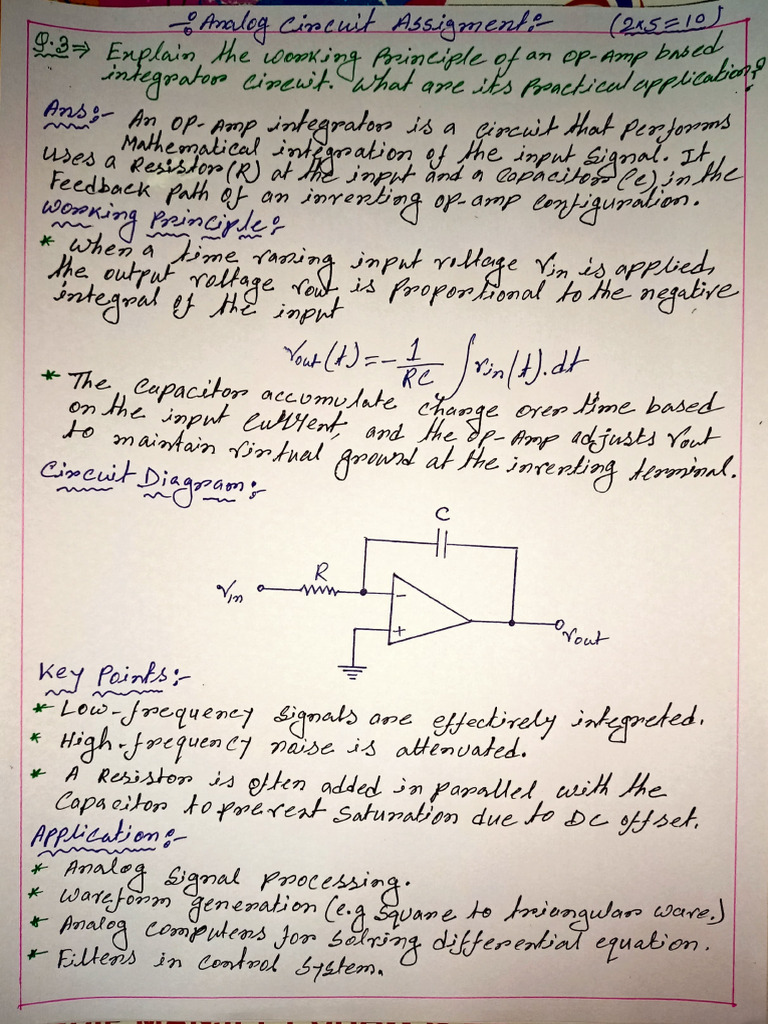 ÷ Analog Circuit Assigment:- (2x5=10)
Q.3⇒ Explain the working Principle of an op-Amp based
integrator circuit. What are its Practical application?
Ans:- An op-Amp integrator is a circuit that Performs
Mathematical integration of the input Signal. It
uses a Resistor (R) at the input and a capacitor (c) in the
Feedback Path of an inverting op-amp configuration.
Working Principle:
* When a time varing input voltage Vin is applied,
the output voltage vout is Proportional to the negative
integral of the input
Vout(t) = - 1/RC ∫vin(t).dt
* The capacitor accumulate charge over time based
on the input current, and the op-Amp adjusts Vout
to maintain virtual ground at the inverting terminal.
Circuit Diagram:-
C
R
Vin
-
+
Vout
Key Points:-
* Low-frequency Signals are effectively integreted.
* High-frequency noise is attenuated.
* A Resistor is often added in parallel with the
Capacitor to prevent Saturation due to DC offset.
Application:-
* Analog Signal Processing.
* Waveform generation (e.g Square to triangular wave.)
* Analog Computers for Solving differential equation.
* Filters in Control System.